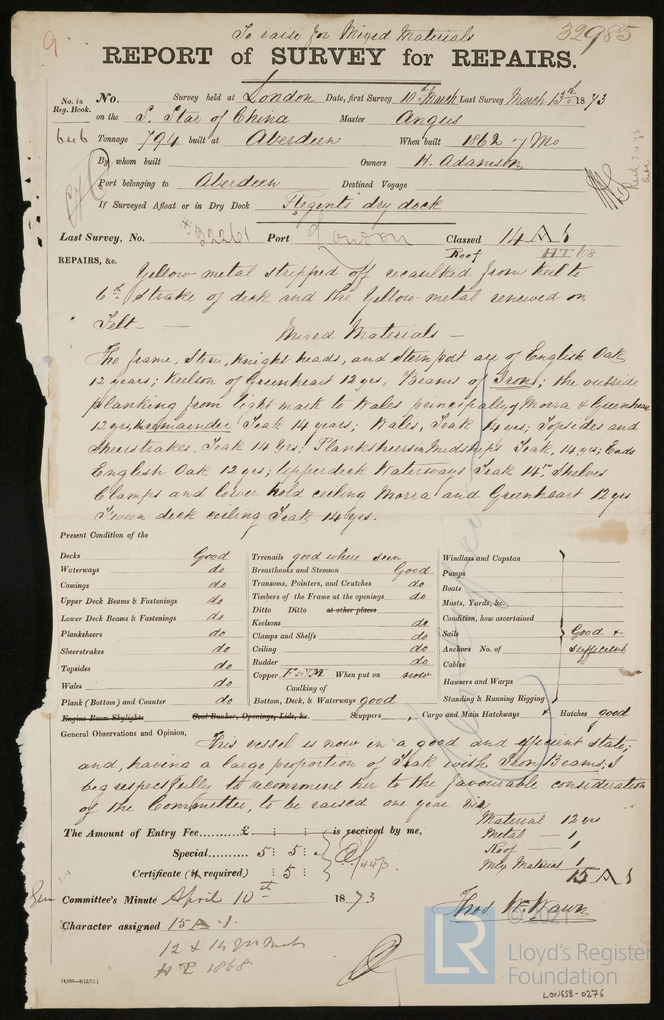 9
To raise for Mixed Materials
32985
REPORT of SURVEY for REPAIRS.
No. in Reg. Book.
No. Survey held at London Date, first Survey 10th March Last Survey March 13th 1873
on the S. Star of China Master Angus
646 Tonnage 794 built at Aberdeen When built 1862 7 Mo
By whom built Owners H. Adamson
Port belonging to Aberdeen Destined Voyage
If Surveyed Afloat or in Dry Dock Regents dry dock
Last Survey, No. 32261 Port London Classed 14 A 1
Roof HT 68
REPAIRS, &c.
Yellow metal stripped off recaulked from keel to
6th strake of deck and the Yellow metal renewed on
Felt —
Mixed Materials —
The frame, Stem, Knight heads, and sternpost are of English Oak
12 years; Keelson of Greenheart 12 yrs, Beams of Iron; the outside
planking from light mark to Wales principally of Morra & Greenheart
12 yrs, remainder Teak 14 years; Wales, Teak 14 yrs; Topsides and
Sheerstrakes, Teak 14 Yrs; Planksheers in Midships Teak, 14 yrs; Ends
English Oak 12 yrs; Upperdeck Waterways Teak 14 yrs, Shelves
Clamps and lower hold ceiling Morra and Greenheart 12 yrs
Tween deck ceiling Teak 14 yrs.
Present Condition of the
Decks Good
Waterways do
Comings do
Upper Deck Beams & Fastenings do
Lower Deck Beams & Fastenings do
Planksheers do
Sheerstrakes do
Topsides do
Wales do
Plank (Bottom) and Counter do
Engine Room Skylights
Coal Bunker, Openings, Lids, &c.
Treenails good where seen
Breasthooks and Stemson Good
Transoms, Pointers, and Crutches do
Timbers of the Frame at the openings do
Ditto Ditto at other places
Keelsons do
Clamps and Shelfs do
Ceiling do
Rudder do
Copper F & YM When put on now
Caulking of
Bottom, Deck, & Waterways good
Scuppers
Windlass and Capstan
Pumps
Boats
Masts, Yards, &c.
Condition, how ascertained
Sails Good &
Anchors No. of sufficient
Cables
Hawsers and Warps
Standing & Running Rigging
Cargo and Main Hatchways & Hatches good
General Observations and Opinion,
This vessel is now in a good and efficient state;
and, having a large proportion of Teak with Iron Beams, I
beg respectfully to recomment her to the favourable consideration
of the Committee, to be raised one year viz
Material 12 yrs
Metal — 1
Roof — 1
Mix Material 1
15 A 1
The Amount of Entry Fee......£ : : is received by me,
Special...... 5 : 5 :
Certificate (if required) : 5 :
Committee's Minute April 10th 1873
Character assigned 15 A. 1.
12 & 14
HT 1868
(4,000—9/12/72.)
© 2021
LR
Lloyd's Register
Foundation
LON658-0276